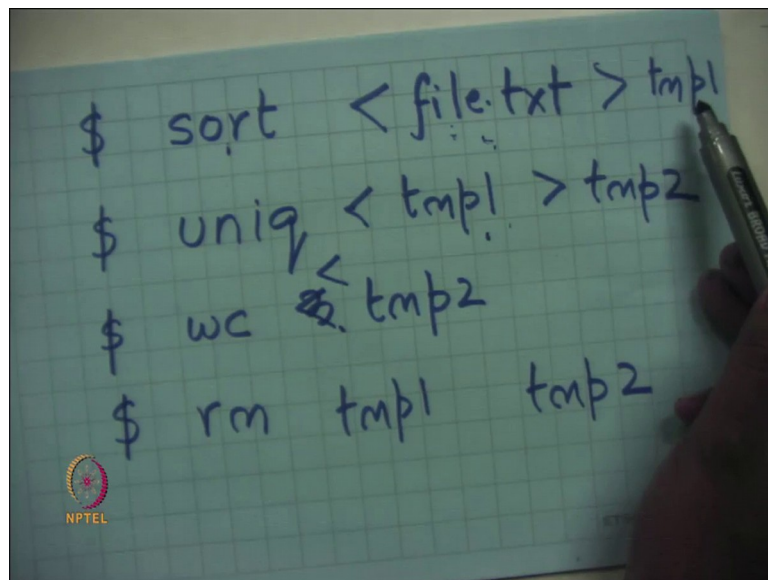 $ sort < file.txt > tmp1
$ uniq < tmp1 > tmp2
$ wc < tmp2
$ rm tmp1 tmp2
NPTEL